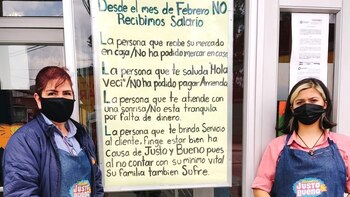 Desde el mes de Febrero NO
Recibimos Salario
La persona que recibe su mercado
en caja/No ha podido mercar en casa
La persona que te saluda Hola
Veci/NO ha podido pagar Arriendo
La persona que te atiende con
una sonrisa/No esta tranquila
por falta de dinero.
La persona que te brinda Servicio
al cliente. Finge estar bien ha
Causa de Justo y Bueno pues
al no contar con su minimo vital
Su familia tambien Sufre.
JUSTO
BUENO
JUSTO
BUENO